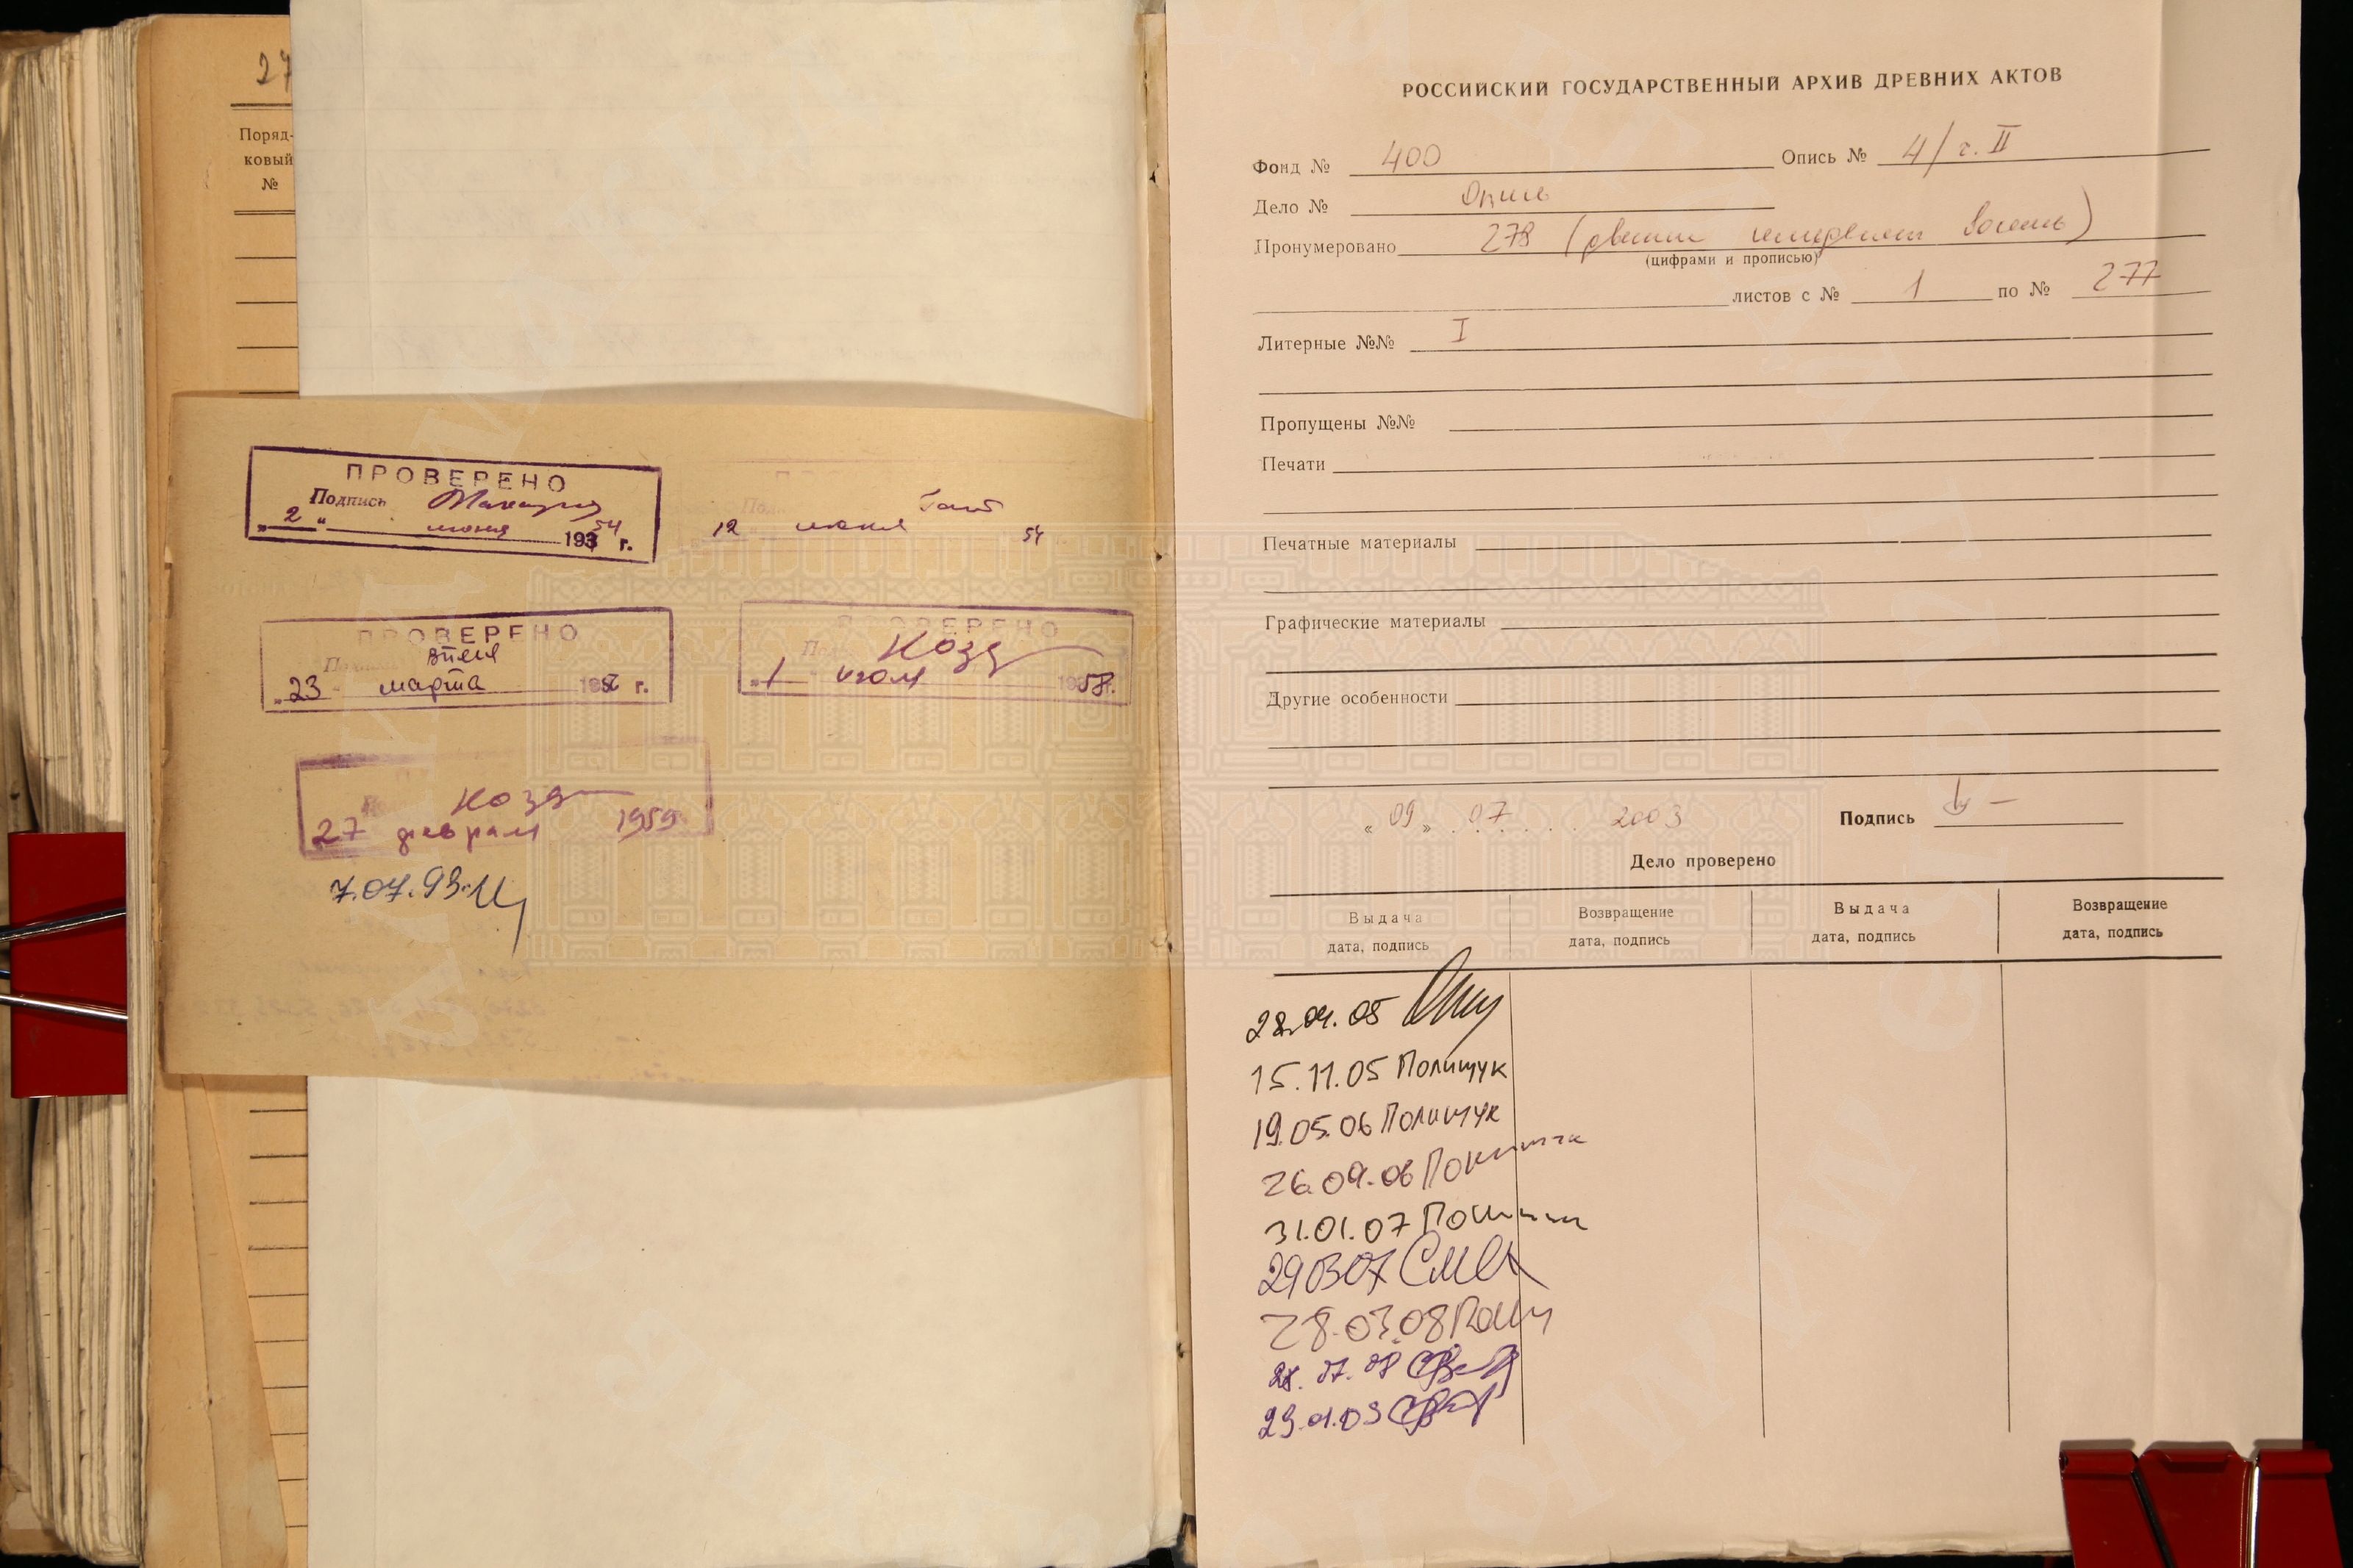 27
Поряд-
ковый
№
ПРОВЕРЕНО
Подпись
„ 2 “ июня 1954 г.
12 июня 54
ПРОВЕРЕНО
„ 23 “ марта 195 г.
ПРОВЕРЕНО
Козл
„ 1 “ июл 1958 г.
Козл
27 феврал 1959
7.07.93.
РОССИЙСКИЙ ГОСУДАРСТВЕННЫЙ АРХИВ ДРЕВНИХ АКТОВ
Фонд № 400 Опись № 4/ч. II
Дело № Опись
Пронумеровано 278 (двести семьдесят восемь)
(цифрами и прописью)
листов с № 1 по № 277
Литерные №№ I
Пропущены №№
Печати
Печатные материалы
Графические материалы
Другие особенности
« 09 » . 07 . . . . 2003 Подпись
Дело проверено
Выдача Возвращение Выдача Возвращение
дата, подпись дата, подпись дата, подпись дата, подпись
28.04.05
15.11.05 Полищук
19.05.06 Полищук
26.09.06 Полищук
31.01.07
29 03 07
28.03.08